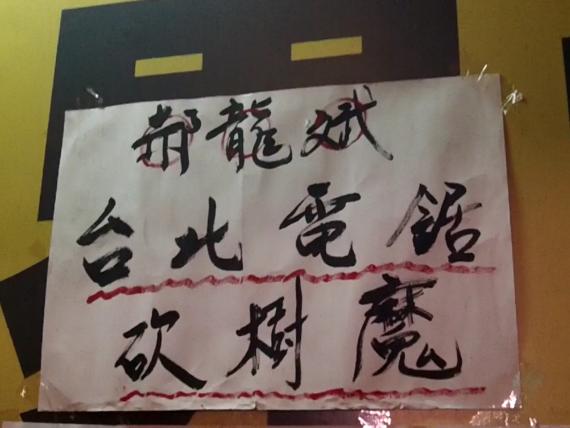 郝龍斌
台北電鋸
砍樹魔